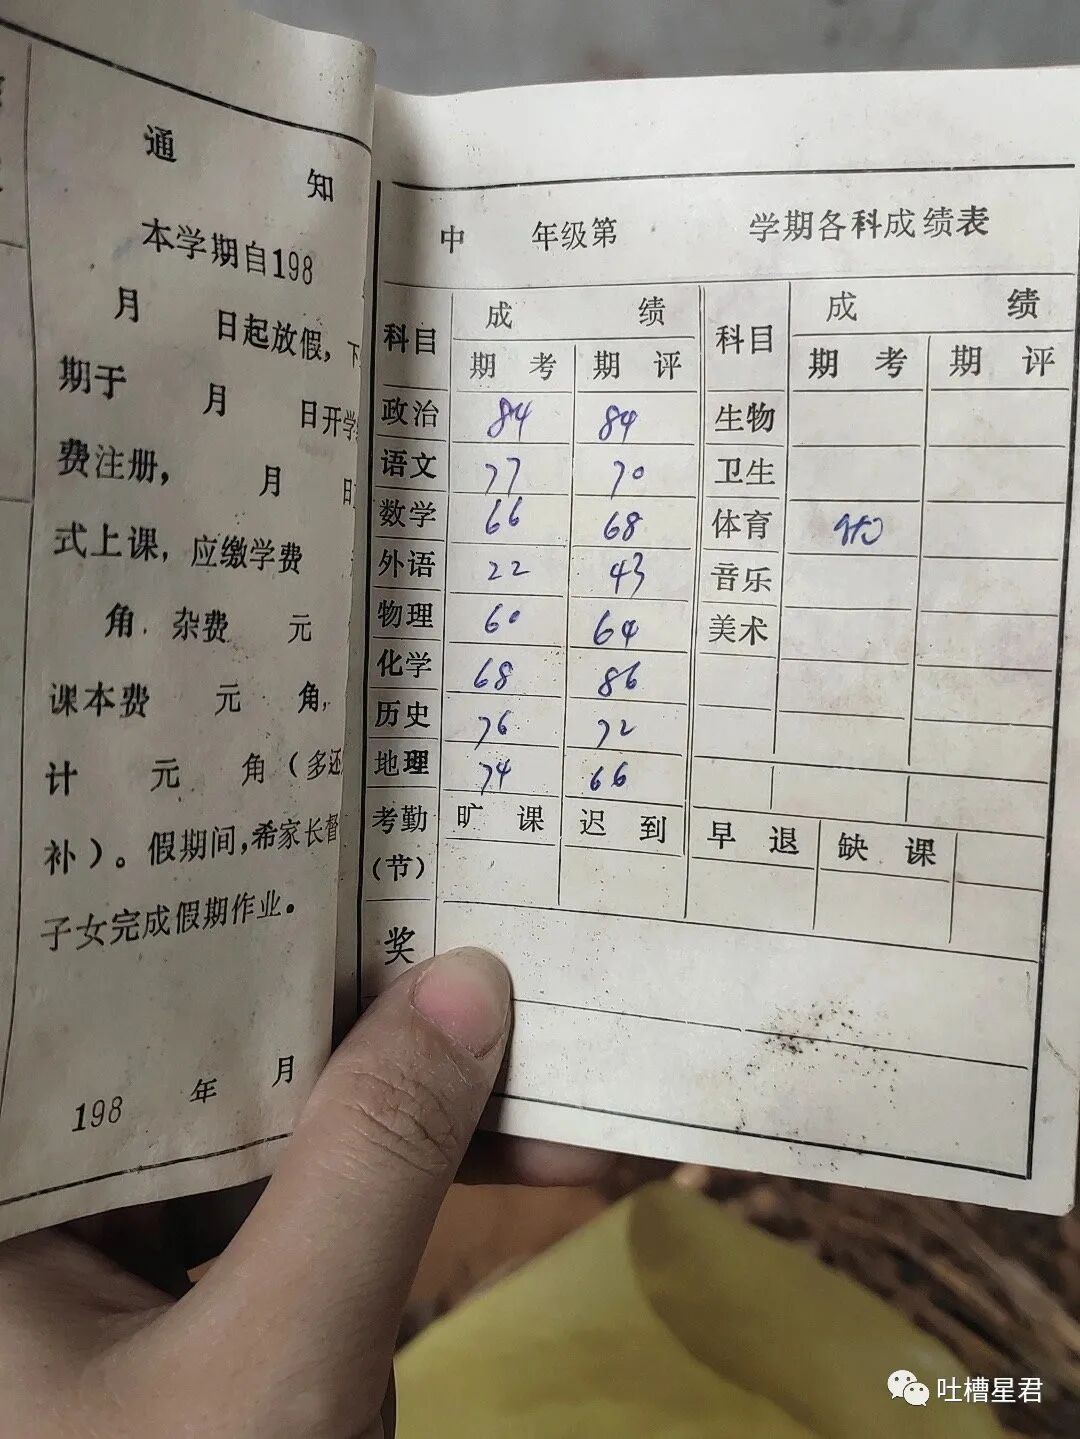 通
知
本学期自198
月 日起放假，下
期于 月 日开学
费注册， 月 日
式上课，应缴学费
角．杂费 元
课本费 元 角，
计 元 角（多还
补）。假期间，希家长督
子女完成假期作业。
198 年 月
中 年级第 学期各科成绩表
科目 成 绩 科目 成 绩
期 考 期 评 期 考 期 评
政治 84 84 生物
语文 77 70 卫生
数学 66 68 体育
外语 22 43 音乐
物理 60 64 美术
化学 68 86
历史 76 72
地理 74 66
考勤 旷 课 迟 到 早 退 缺 课
(节)
奖
吐槽星君